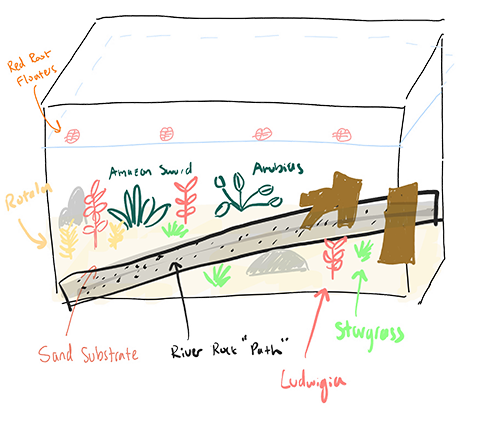 Red Root
Floaters
Amazon Sword
Anubias
Rotala
Sand Substrate
River Rock "Path"
Stargrass
Ludwigia